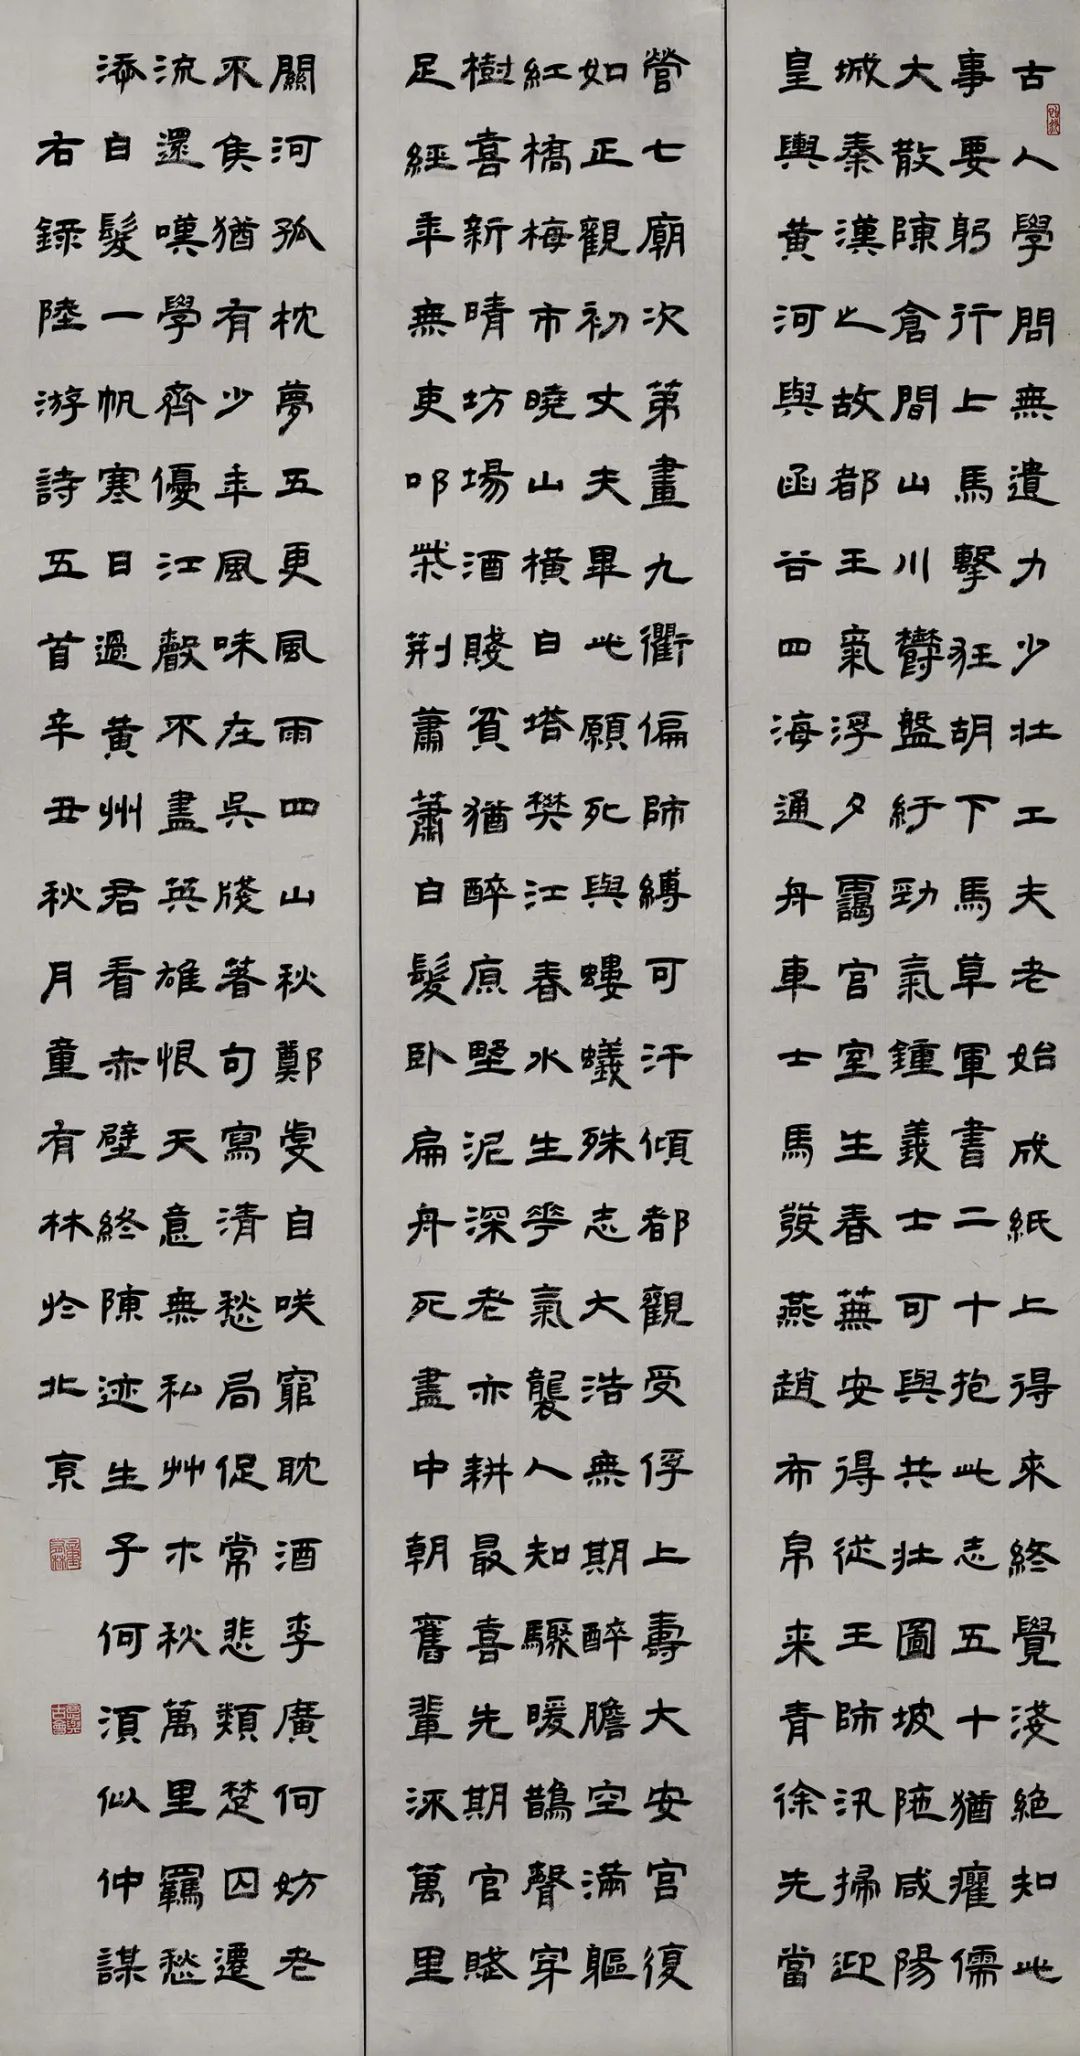 古人學問無遺力少壯工夫老始成紙上得來終覺淺絕知此
事要躬行上馬擊狂胡下馬草軍書二十抱此志五十猶癯儒
大散陳倉間山川鬱盤紆勁氣鍾義士可與共壯圖坡陁咸陽
城秦漢之故都王氣浮夕靄宮室生春蕪安得從王師汛掃迎
皇輿黃河與函谷四海通舟車士馬發燕趙布帛来青徐先當
營七廟次第畫九衢偏師縛可汗傾都觀受俘上壽大安宮復
如正觀初丈夫畢此願死與螻蟻殊志大浩無期醉膽空滿軀
紅橋梅市曉山橫白塔樊江春水生花氣襲人知驟暖鵲聲穿
樹喜新晴坊場酒賤貧猶醉原野泥深老亦耕最喜先期官賦
足經年無吏叩柴荊蕭蕭白髮臥扁舟死盡中朝舊輩流萬里
關河孤枕夢五更風雨四山秋鄭虔自笑窮耽酒李廣何妨老
不侯猶有少年風味在吳牋著句寫清愁局促常悲類楚囚遷
流還嘆學齊優江聲不盡英雄恨天意無私艸木秋萬里羈愁
添白髮一帆寒日過黃州君看赤壁終陳迹生子何須似仲謀
右錄陸游詩五首辛丑秋月童有林於北京